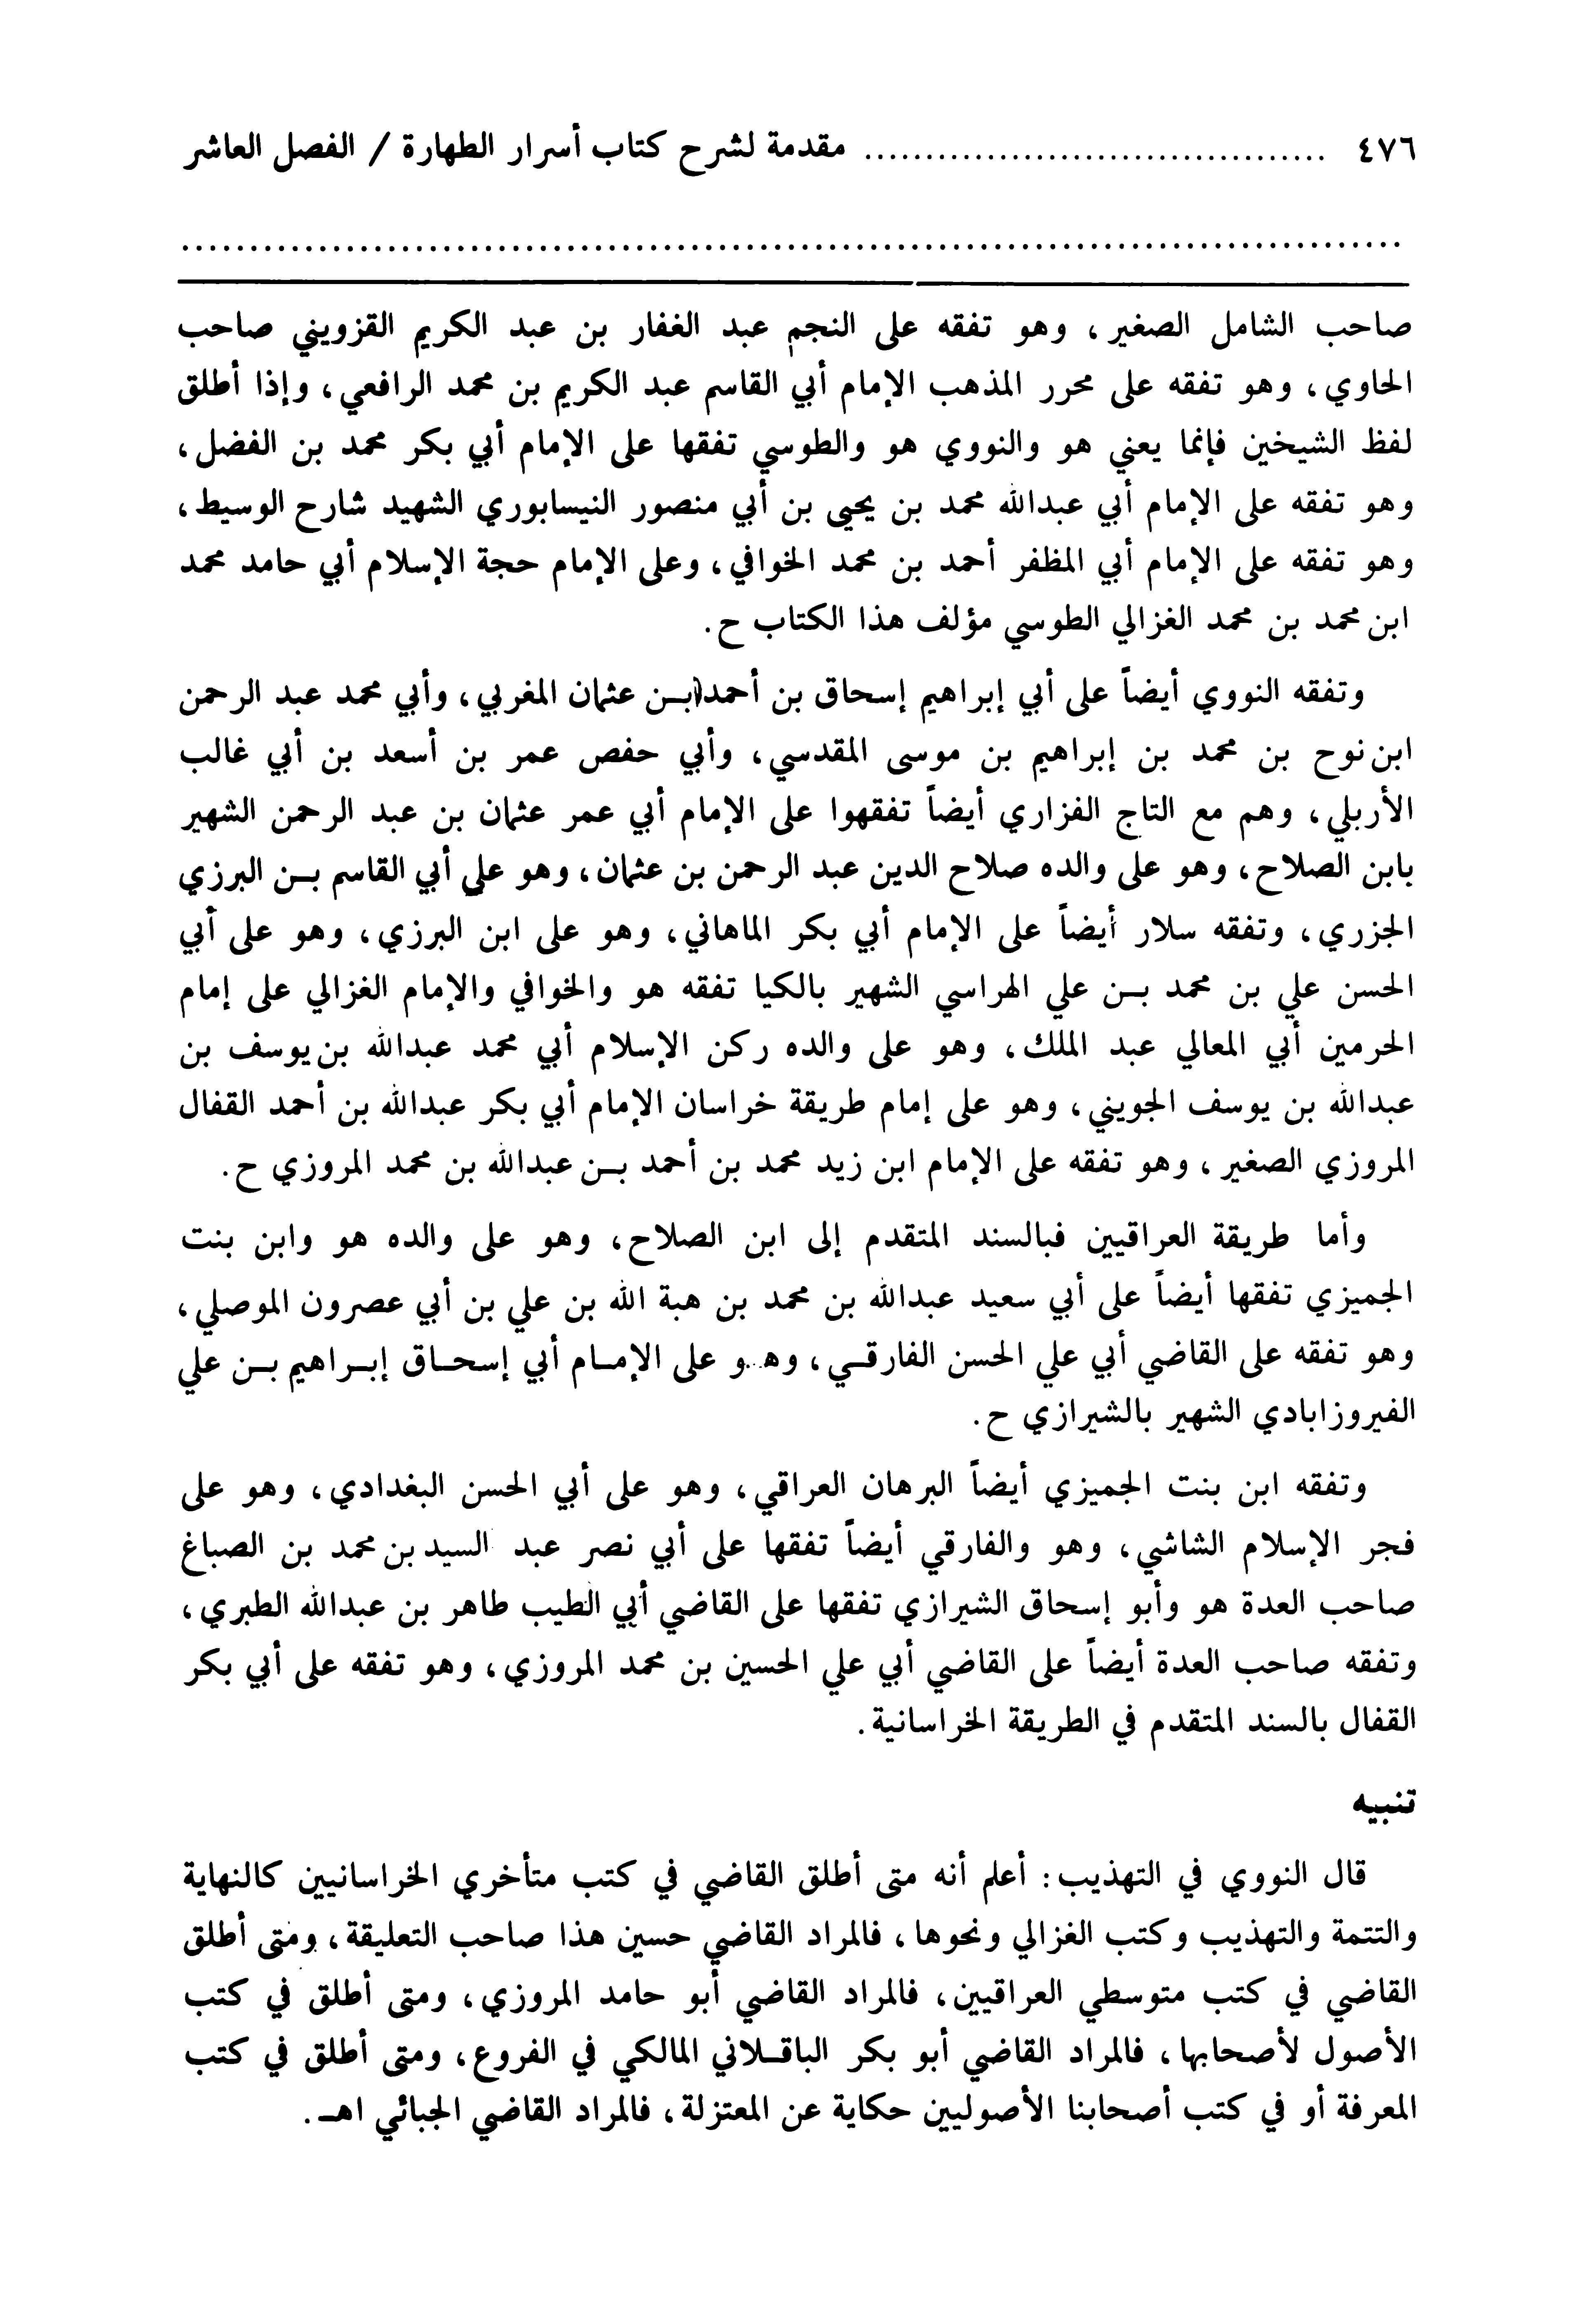 ٤٧٦ ...................................... مقدمة لشرح كتاب أسرار الطهارة / الفصل العاشر
..........................................................................................
صاحب الشامل الصغير، وهو تفقه على النجم عبد الغفار بن عبد الكريم القزويني صاحب
الحاوي، وهو تفقه على محرر المذهب الإمام أبي القاسم عبد الكريم بن محمد الرافعي، وإذا أطلق
لفظ الشيخين فإنما يعني هو والنووي هو والطوسي تفقها على الإمام أبي بكر محمد بن الفضل،
وهو تفقه على الإمام أبي عبدالله محمد بن يحيى بن أبي منصور النيسابوري الشهيد شارح الوسيط،
وهو تفقه على الإمام أبي المظفر أحمد بن محمد الخوافي، وعلى الإمام حجة الإسلام أبي حامد محمد
ابن محمد بن محمد الغزالي الطوسي مؤلف هذا الكتاب ح.
وتفقه النووي أيضاً على أبي إبراهيم إسحاق بن أحمد ابـن عثمان المغربي، وأبي محمد عبد الرحمن
ابن نوح بن محمد بن إبراهيم بن موسى المقدسي، وأبي حفص عمر بن أسعد بن أبي غالب
الأربلي، وهم مع التاج الفزاري أيضاً تفقهوا على الإمام أبي عمر عثمان بن عبد الرحمن الشهير
بابن الصلاح، وهو على والده صلاح الدين عبد الرحمن بن عثمان، وهو على أبي القاسم بـن البرزي
الجزري، وتفقه سلار أيضاً على الإمام أبي بكر الماهاني، وهو على ابن البرزي، وهو على أبي
الحسن علي بن محمد بـن علي الهراسي الشهير بالكيا تفقه هو والخوافي والإمام الغزالي على إمام
الحرمين أبي المعالي عبد الملك، وهو على والده ركن الإسلام أبي محمد عبدالله بن يوسف بن
عبدالله بن يوسف الجويني، وهو على إمام طريقة خراسان الإمام أبي بكر عبدالله بن أحمد القفال
المروزي الصغير، وهو تفقه على الإمام ابن زيد محمد بن أحمد بـن عبدالله بن محمد المروزي ح.
وأما طريقة العراقيين فبالسند المتقدم إلى ابن الصلاح، وهو على والده هو وابن بنت
الجميزي تفقها أيضاً على أبي سعيد عبدالله بن محمد بن هبة الله بن علي بن أبي عصرون الموصلي،
وهو تفقه على القاضي أبي علي الحسن الفارقـي، وهـو على الإمـام أبي إسحـاق إبـراهيم بـن علي
الفيروزابادي الشهير بالشيرازي ح.
وتفقه ابن بنت الجميزي أيضاً البرهان العراقي، وهو على أبي الحسن البغدادي، وهو على
فجر الإسلام الشاشي، وهو والفارقي أيضاً تفقها على أبي نصر عبد السيد بن محمد بن الصباغ
صاحب العدة هو وأبو إسحاق الشيرازي تفقها على القاضي أبي الطيب طاهر بن عبدالله الطبري،
وتفقه صاحب العدة أيضاً على القاضي أبي علي الحسين بن محمد المروزي، وهو تفقه على أبي بكر
القفال بالسند المتقدم في الطريقة الخراسانية.
تنبيه
قال النووي في التهذيب: أعلم أنه متى أطلق القاضي في كتب متأخري الخراسانيين كالنهاية
والتتمة والتهذيب وكتب الغزالي ونحوها، فالمراد القاضي حسين هذا صاحب التعليقة، ومتى أطلق
القاضي في كتب متوسطي العراقيين، فالمراد القاضي أبو حامد المروزي، ومتى أطلق في كتب
الأصول لأصحابها، فالمراد القاضي أبو بكر الباقـلاني المالكي في الفروع، ومتى أطلق في كتب
المعرفة أو في كتب أصحابنا الأصوليين حكاية عن المعتزلة، فالمراد القاضي الجبائي اهـ.